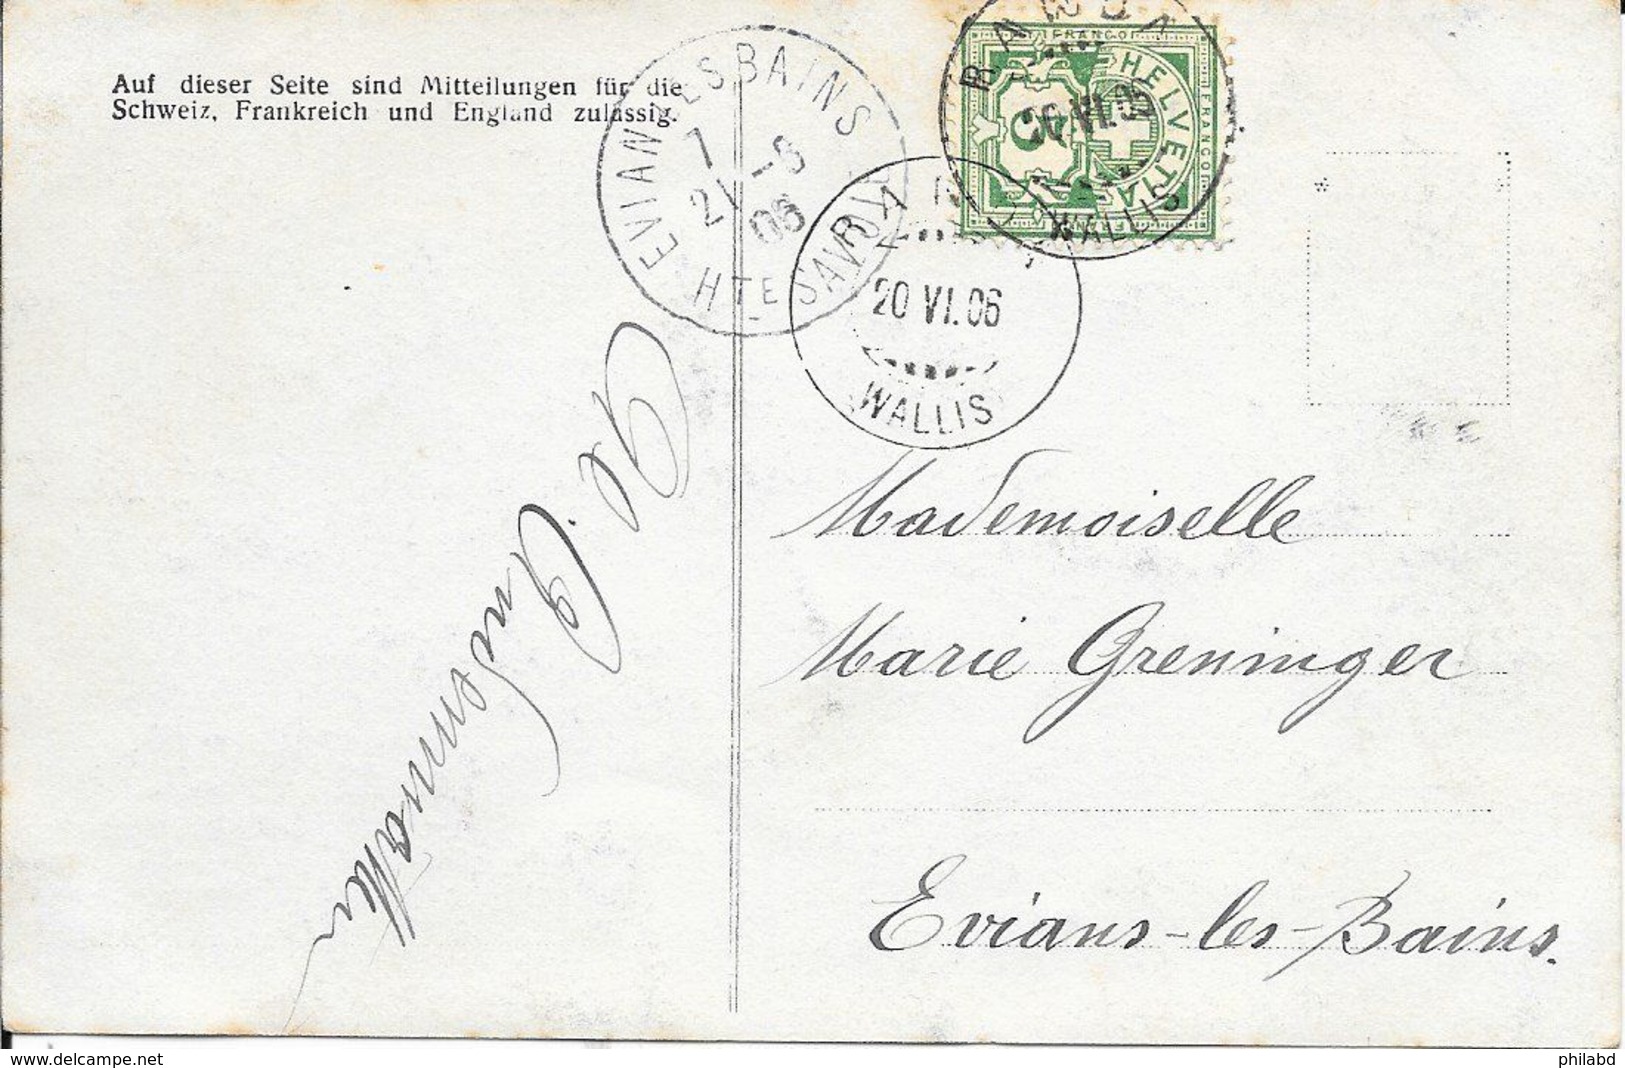 Auf dieser Seite sind Mitteilungen für die
Schweiz, Frankreich und England zulässig.
EVIAN LES BAINS
7
21 -6
06
HTE SAVOIE
RANDA
20 VI. 06
WALLIS
RANDA
20 VI. 06
WALLIS
FRANCO
HELVETIA
5
Mademoiselle
Marie Greninger
Evians-les-Bains.
www.delcampe.net
philabd